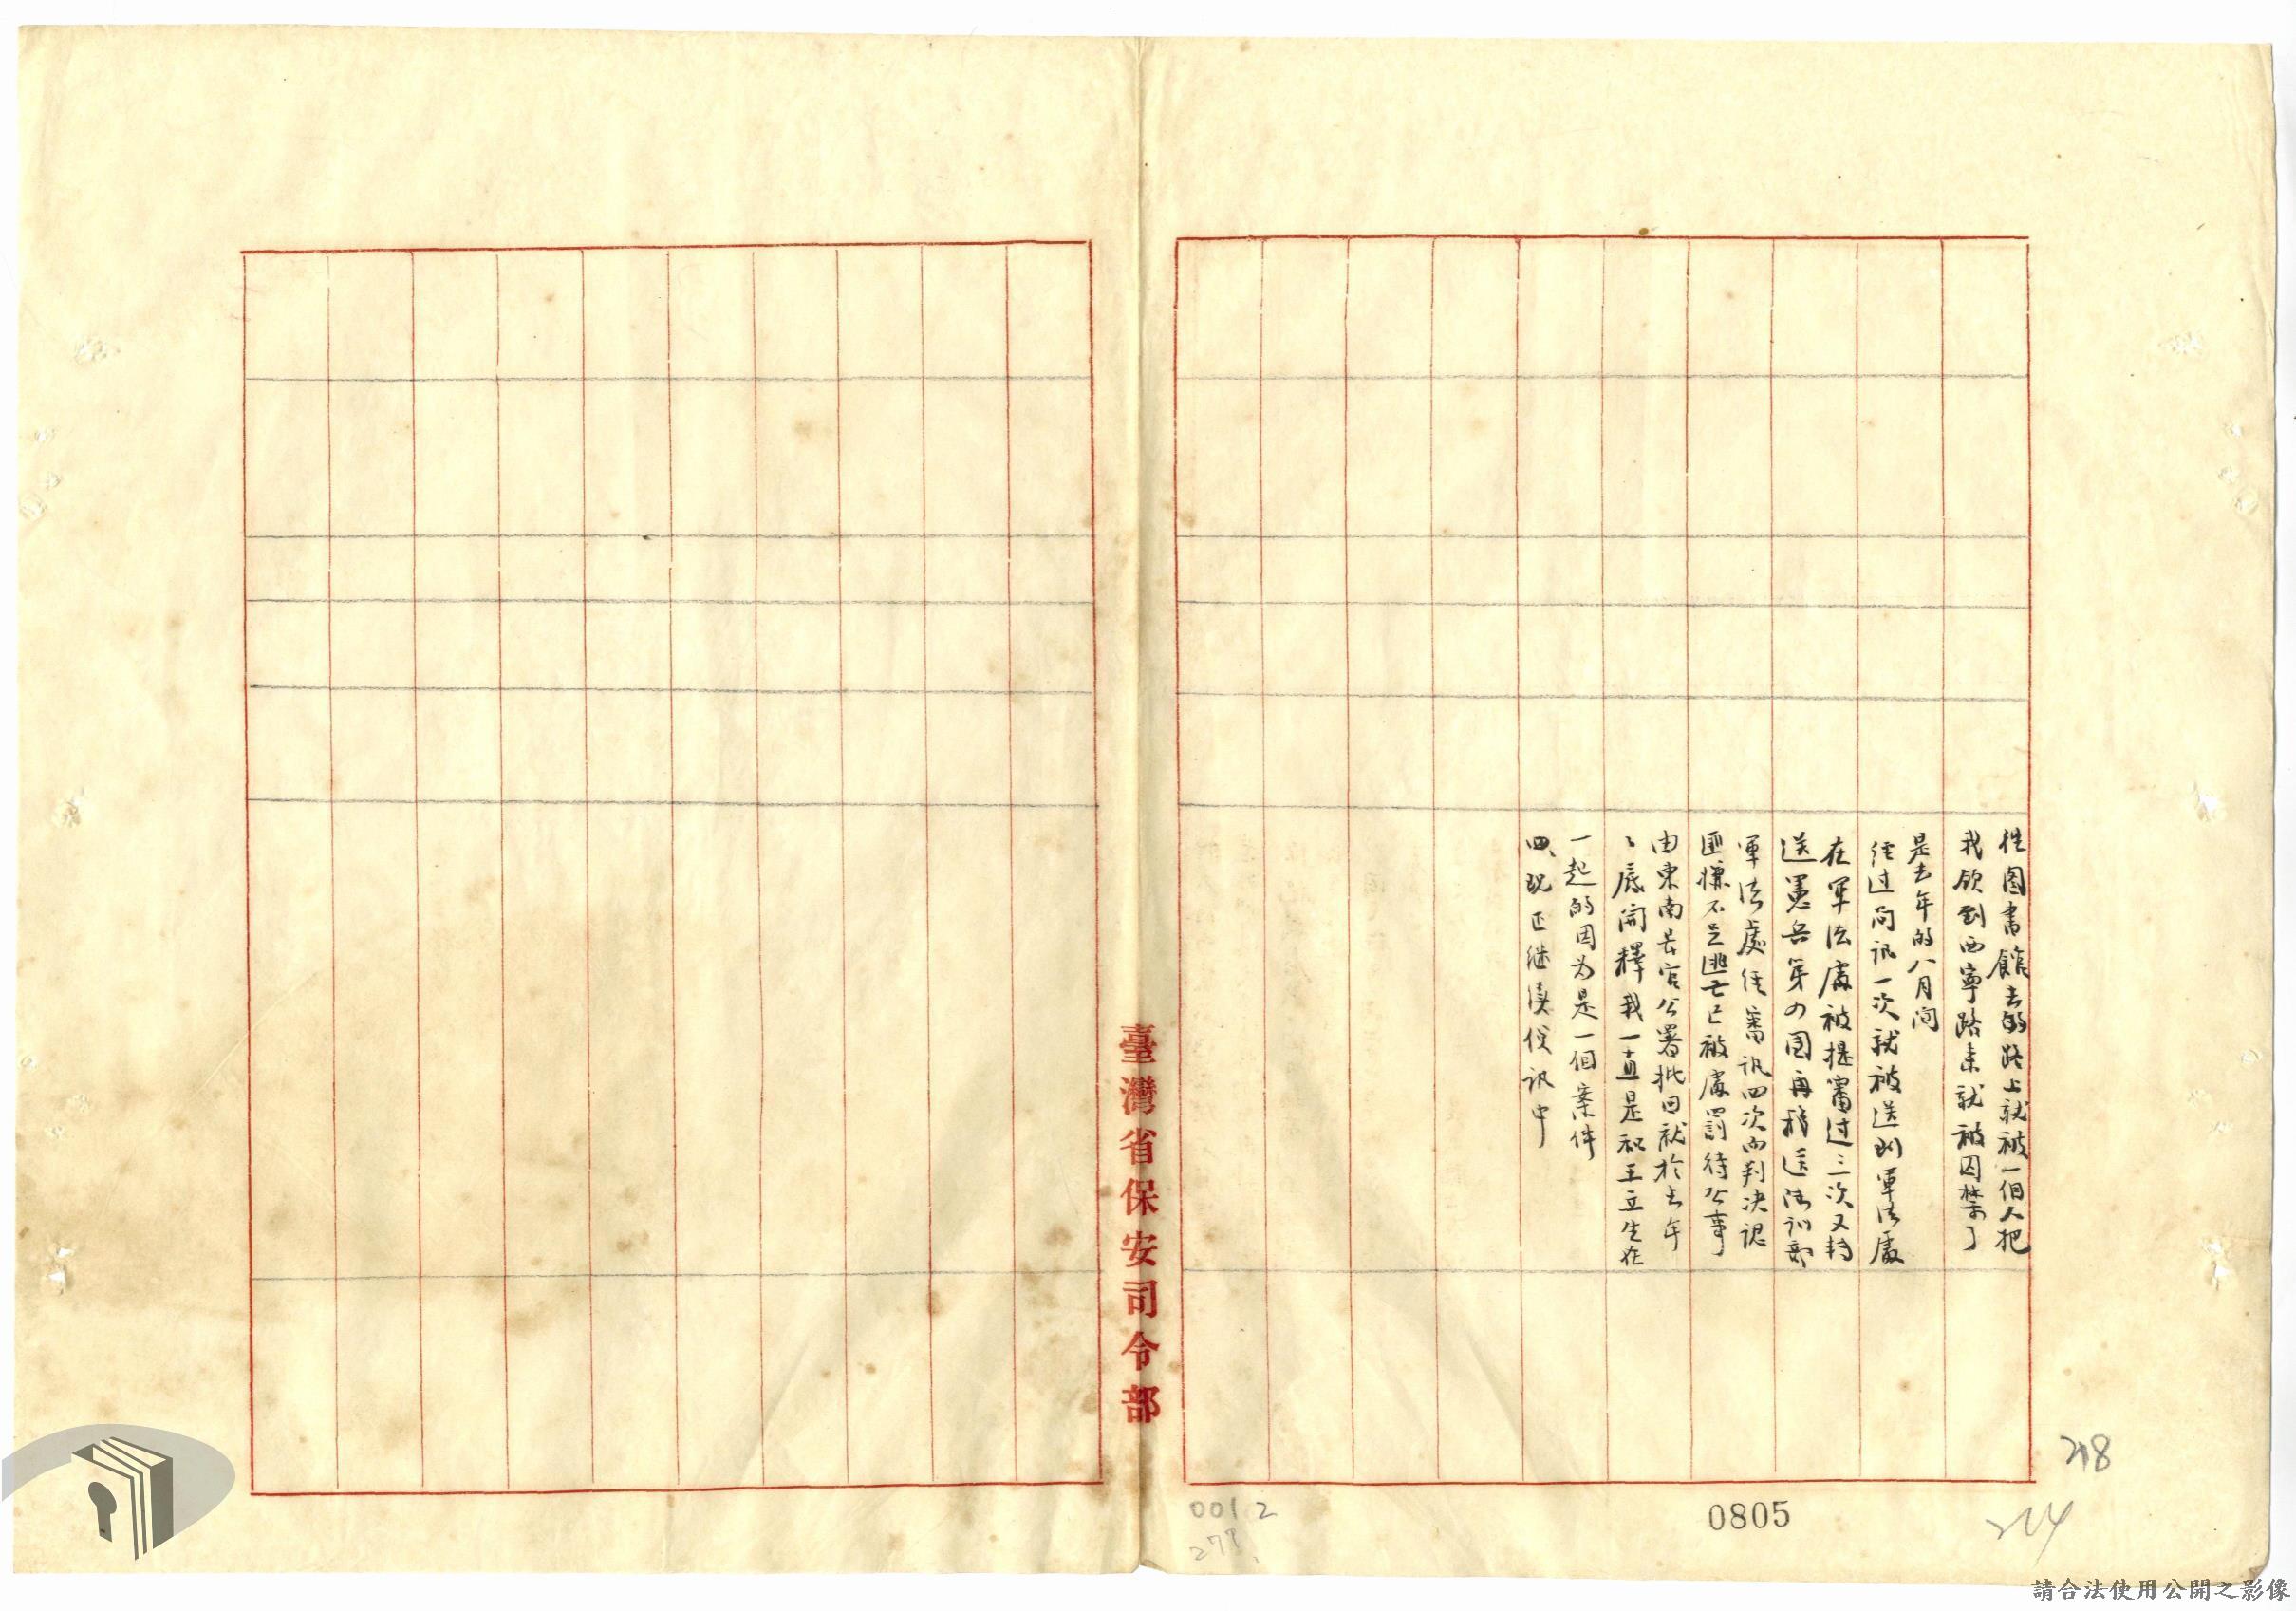 往图書館去的路上就被一個人把
我領到西寧路來就被囚禁了
是去年的八月间
经过问訊一次就被送到軍法處
在軍法處被提審过三次又轉
送憲兵第四團再移送法訓部
軍法處经審訊四次而判决認
匪據不足逃亡已被處罰待公事
由東南長官公署批回就於去年
年底開釋我一直是和王立生在
一起的因为是一個案件
四、現正继續侦訊中
臺灣省保安司令部
218
214
0805
0012
277
請合法使用公開之影像